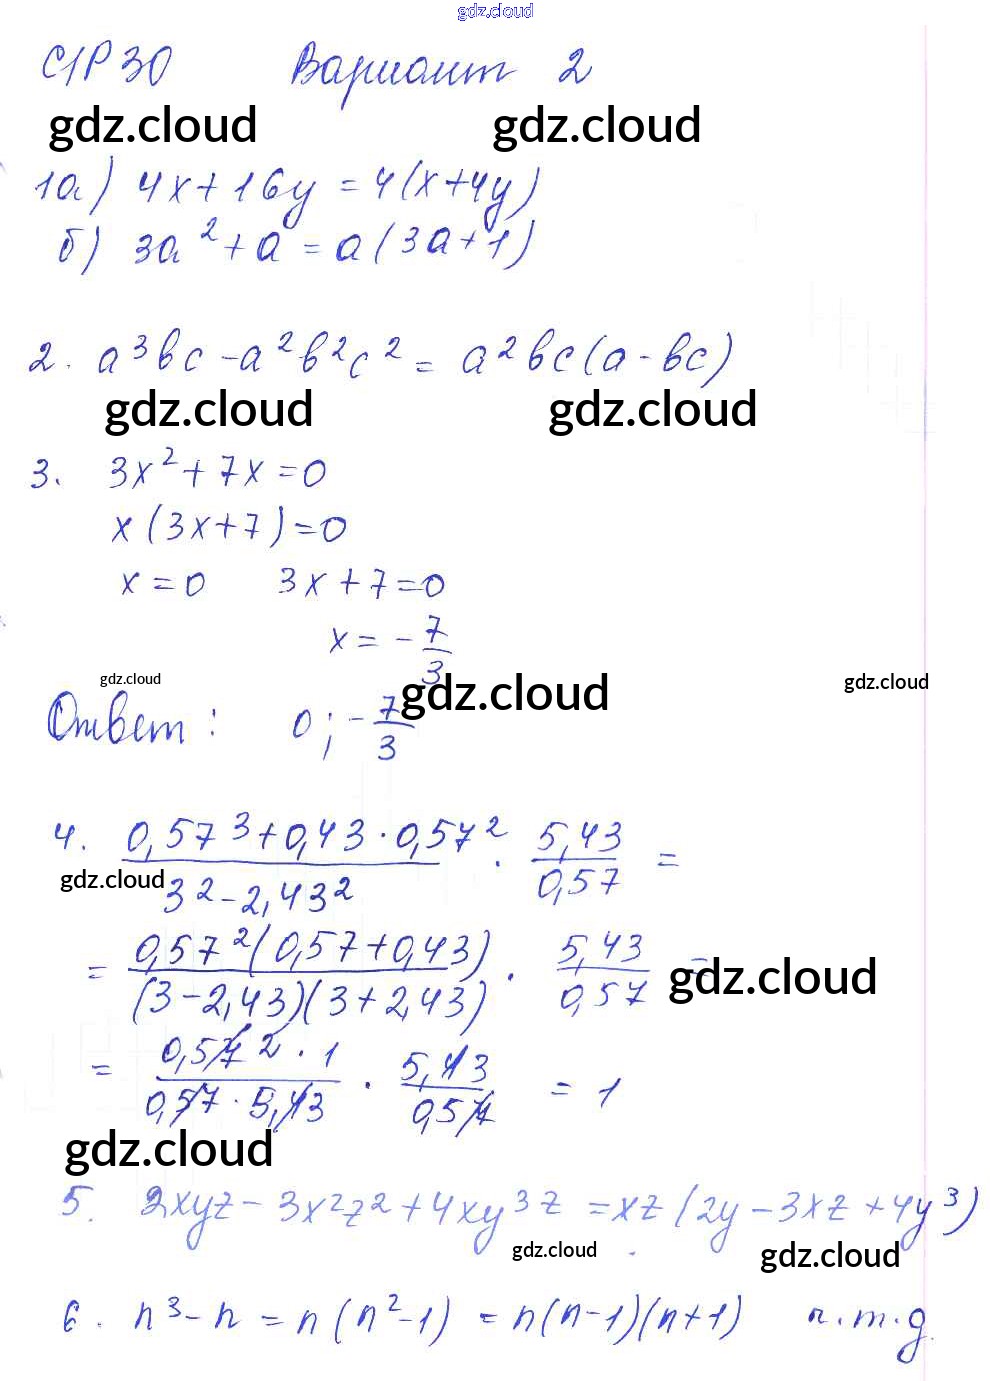 gdz.cloud
С/Р 30 Вариант 2
gdz.cloud gdz.cloud
1а) 4x+16y = 4(x+4y)
б) 3a²+a = a(3a+1)
2. a³bc-a²b²c² = a²bc(a-bc)
gdz.cloud gdz.cloud
3. 3x²+7x=0
x(3x+7)=0
x=0 3x+7=0
x = -7/3
gdz.cloud gdz.cloud gdz.cloud
Ответ: 0; -7/3
4. (0,57³+0,43·0,57²)/(3²-2,43²) · 5,43/0,57 =
gdz.cloud
= (0,57²(0,57+0,43))/((3-2,43)(3+2,43)) · 5,43/0,57 =
gdz.cloud
= (0,57²·1)/(0,57·5,43) · 5,43/0,57 = 1
gdz.cloud
5. 2xyz-3x²z²+4xy³z = xz(2y-3xz+4y³)
gdz.cloud gdz.cloud
6. n³-n = n(n²-1) = n(n-1)(n+1) ч.т.д.